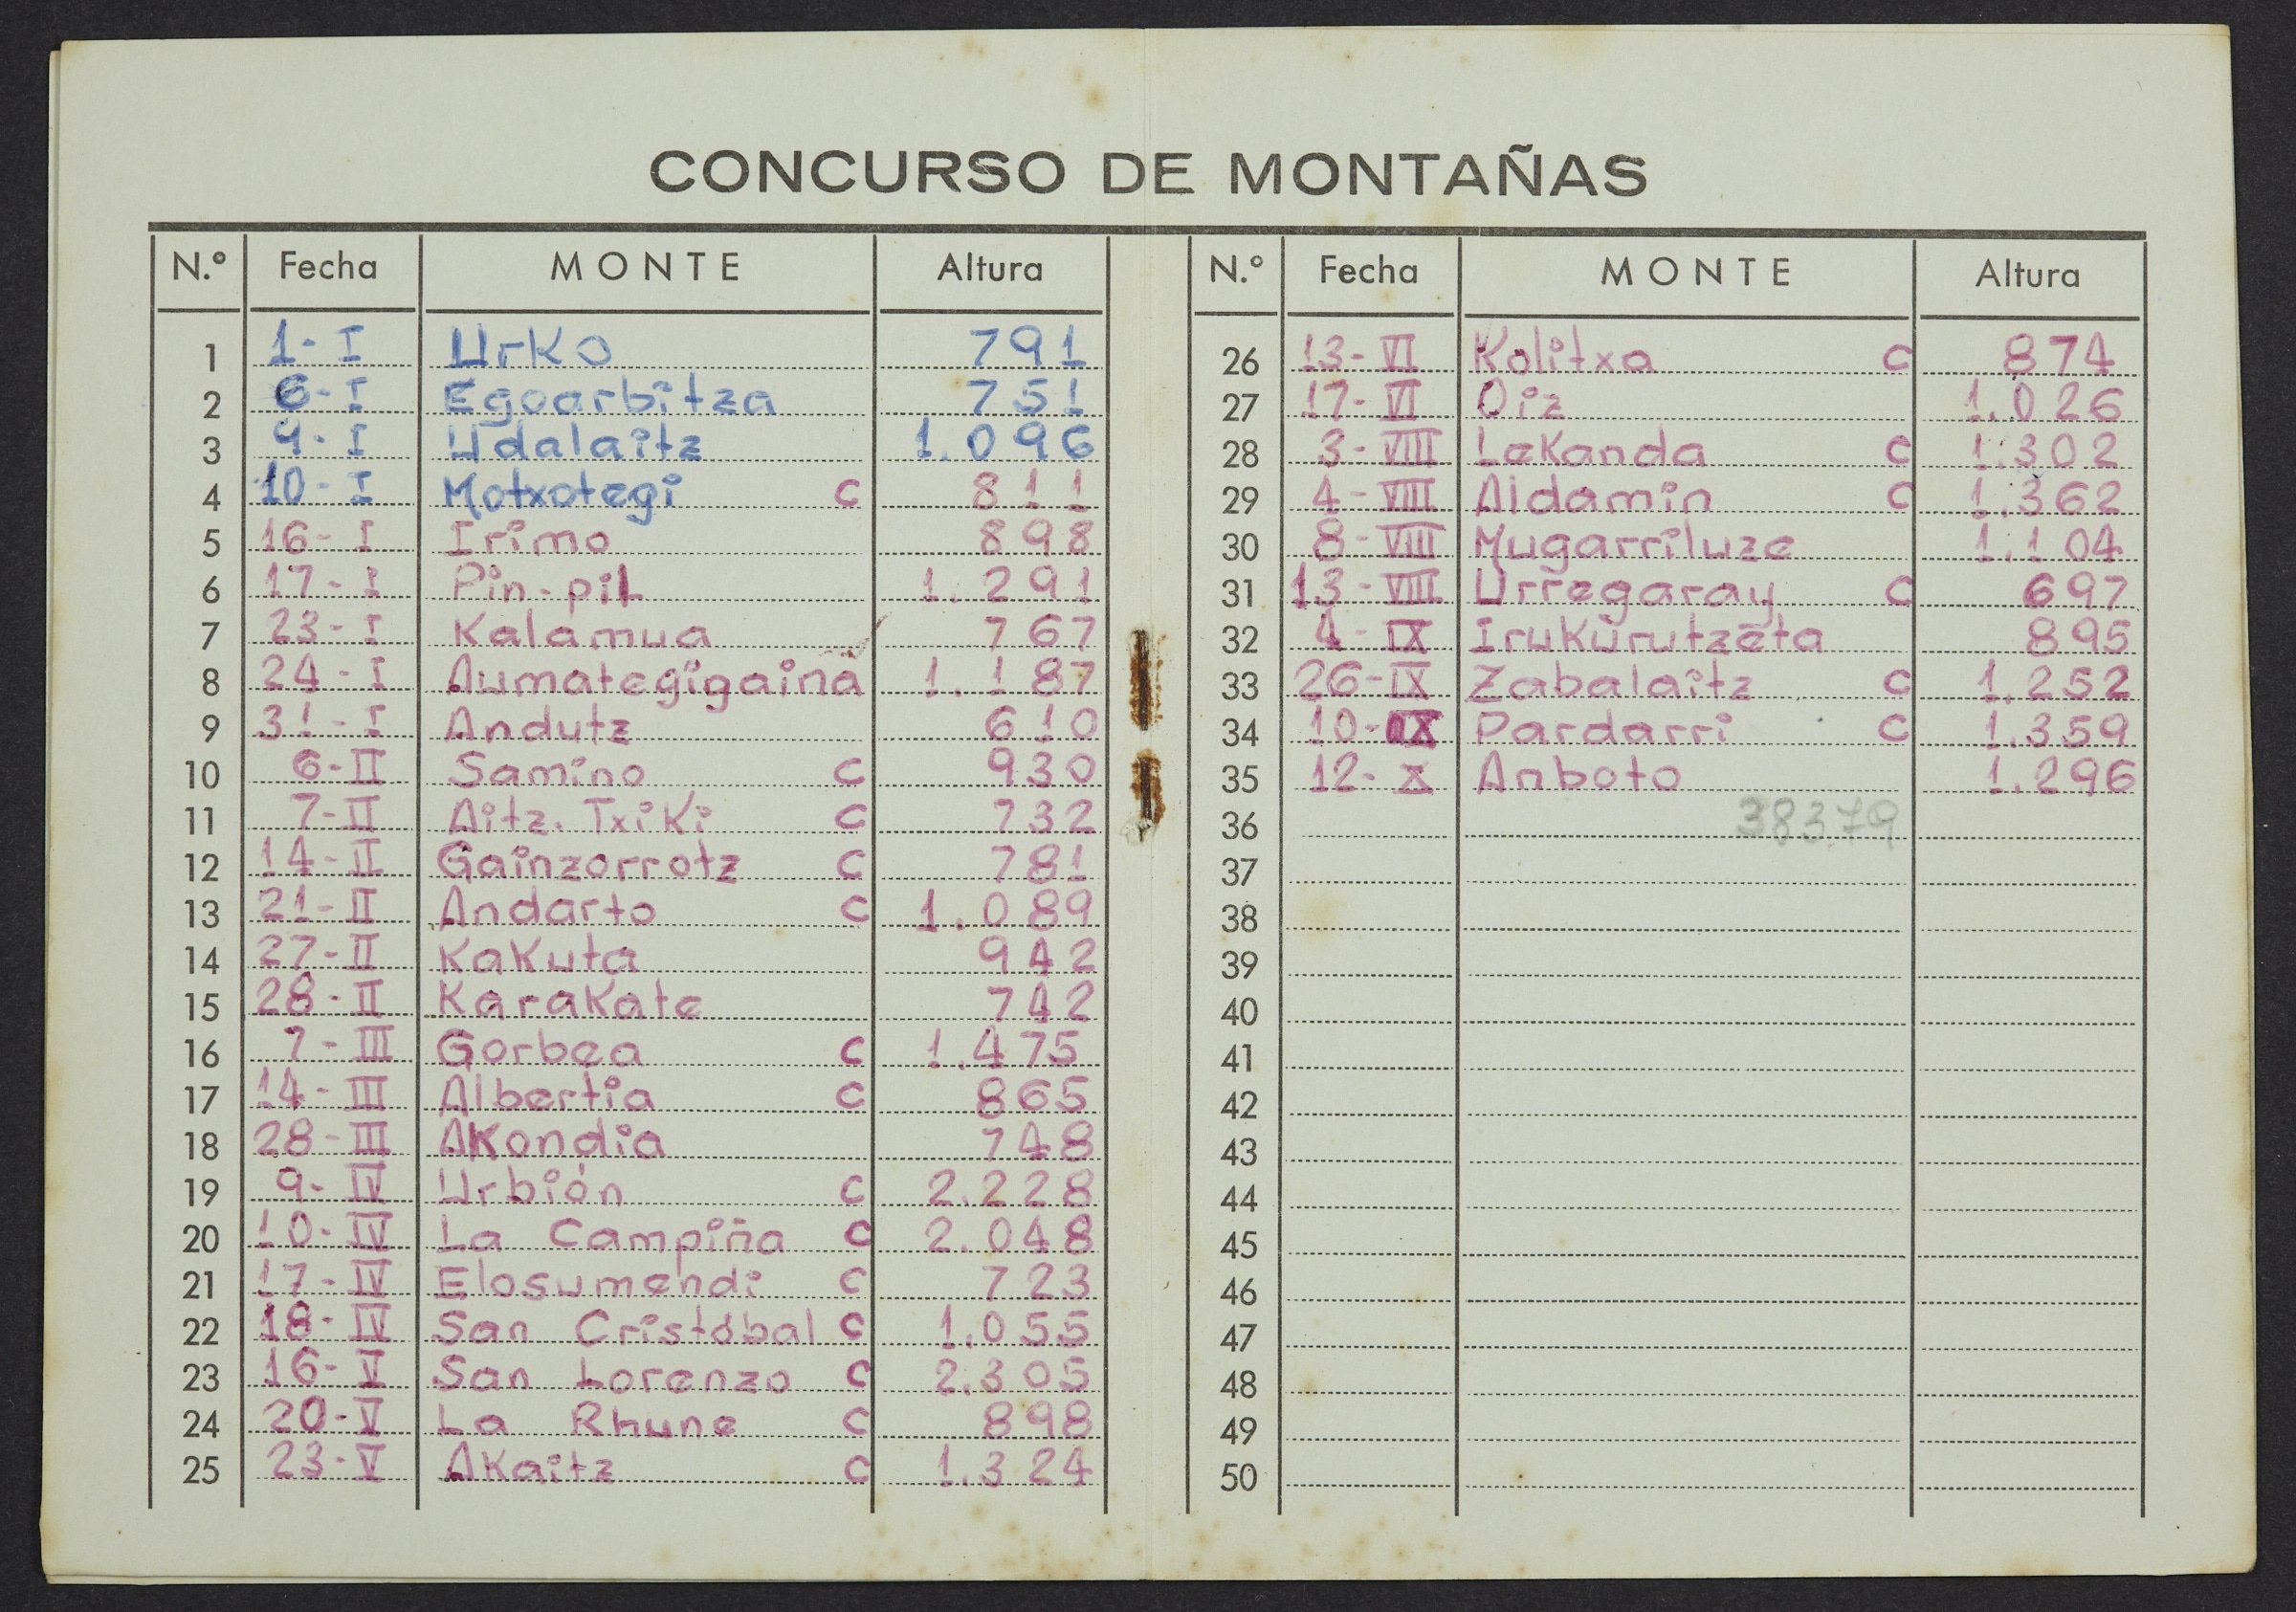 CONCURSO DE MONTAÑAS
N.º Fecha MONTE Altura
1 1-I Urko 791
2 6-I Egoarbitza 751
3 9-I Udalaitz 1.096
4 10-I Motxotegi C 811
5 16-I Irimo 898
6 17-I Pin-pil 1.291
7 23-I Kalamua 767
8 24-I Aumategigaina 1.187
9 31-I Andutz 610
10 6-II Samiño C 930
11 7-II Aitz.Txiki C 732
12 14-II Gainzorrotz C 781
13 21-II Andarto C 1.089
14 27-II Kakuta 942
15 28-II Karakate 742
16 7-III Gorbea C 1.475
17 14-III Albertia C 865
18 28-III Akondia 748
19 9-IV Urbión C 2.228
20 10-IV La Campiña C 2.048
21 17-IV Elosumendi C 723
22 18-IV San Cristóbal C 1.055
23 16-V San Lorenzo C 2.305
24 20-V La Rhune C 898
25 23-V Akaitz C 1.324
N.º Fecha MONTE Altura
26 13-VI Kolitxa C 874
27 17-VI Oiz 1.026
28 3-VIII Lekanda C 1.302
29 4-VIII Aldamin C 1.362
30 8-VIII Mugarriluze 1.104
31 13-VIII Urregaray C 697
32 4-IX Irukurutzeta 895
33 26-IX Zabalaitz C 1.252
34 10-IX Pardarri C 1.359
35 12-X Anboto 1.296
36 38379
37
38
39
40
41
42
43
44
45
46
47
48
49
50